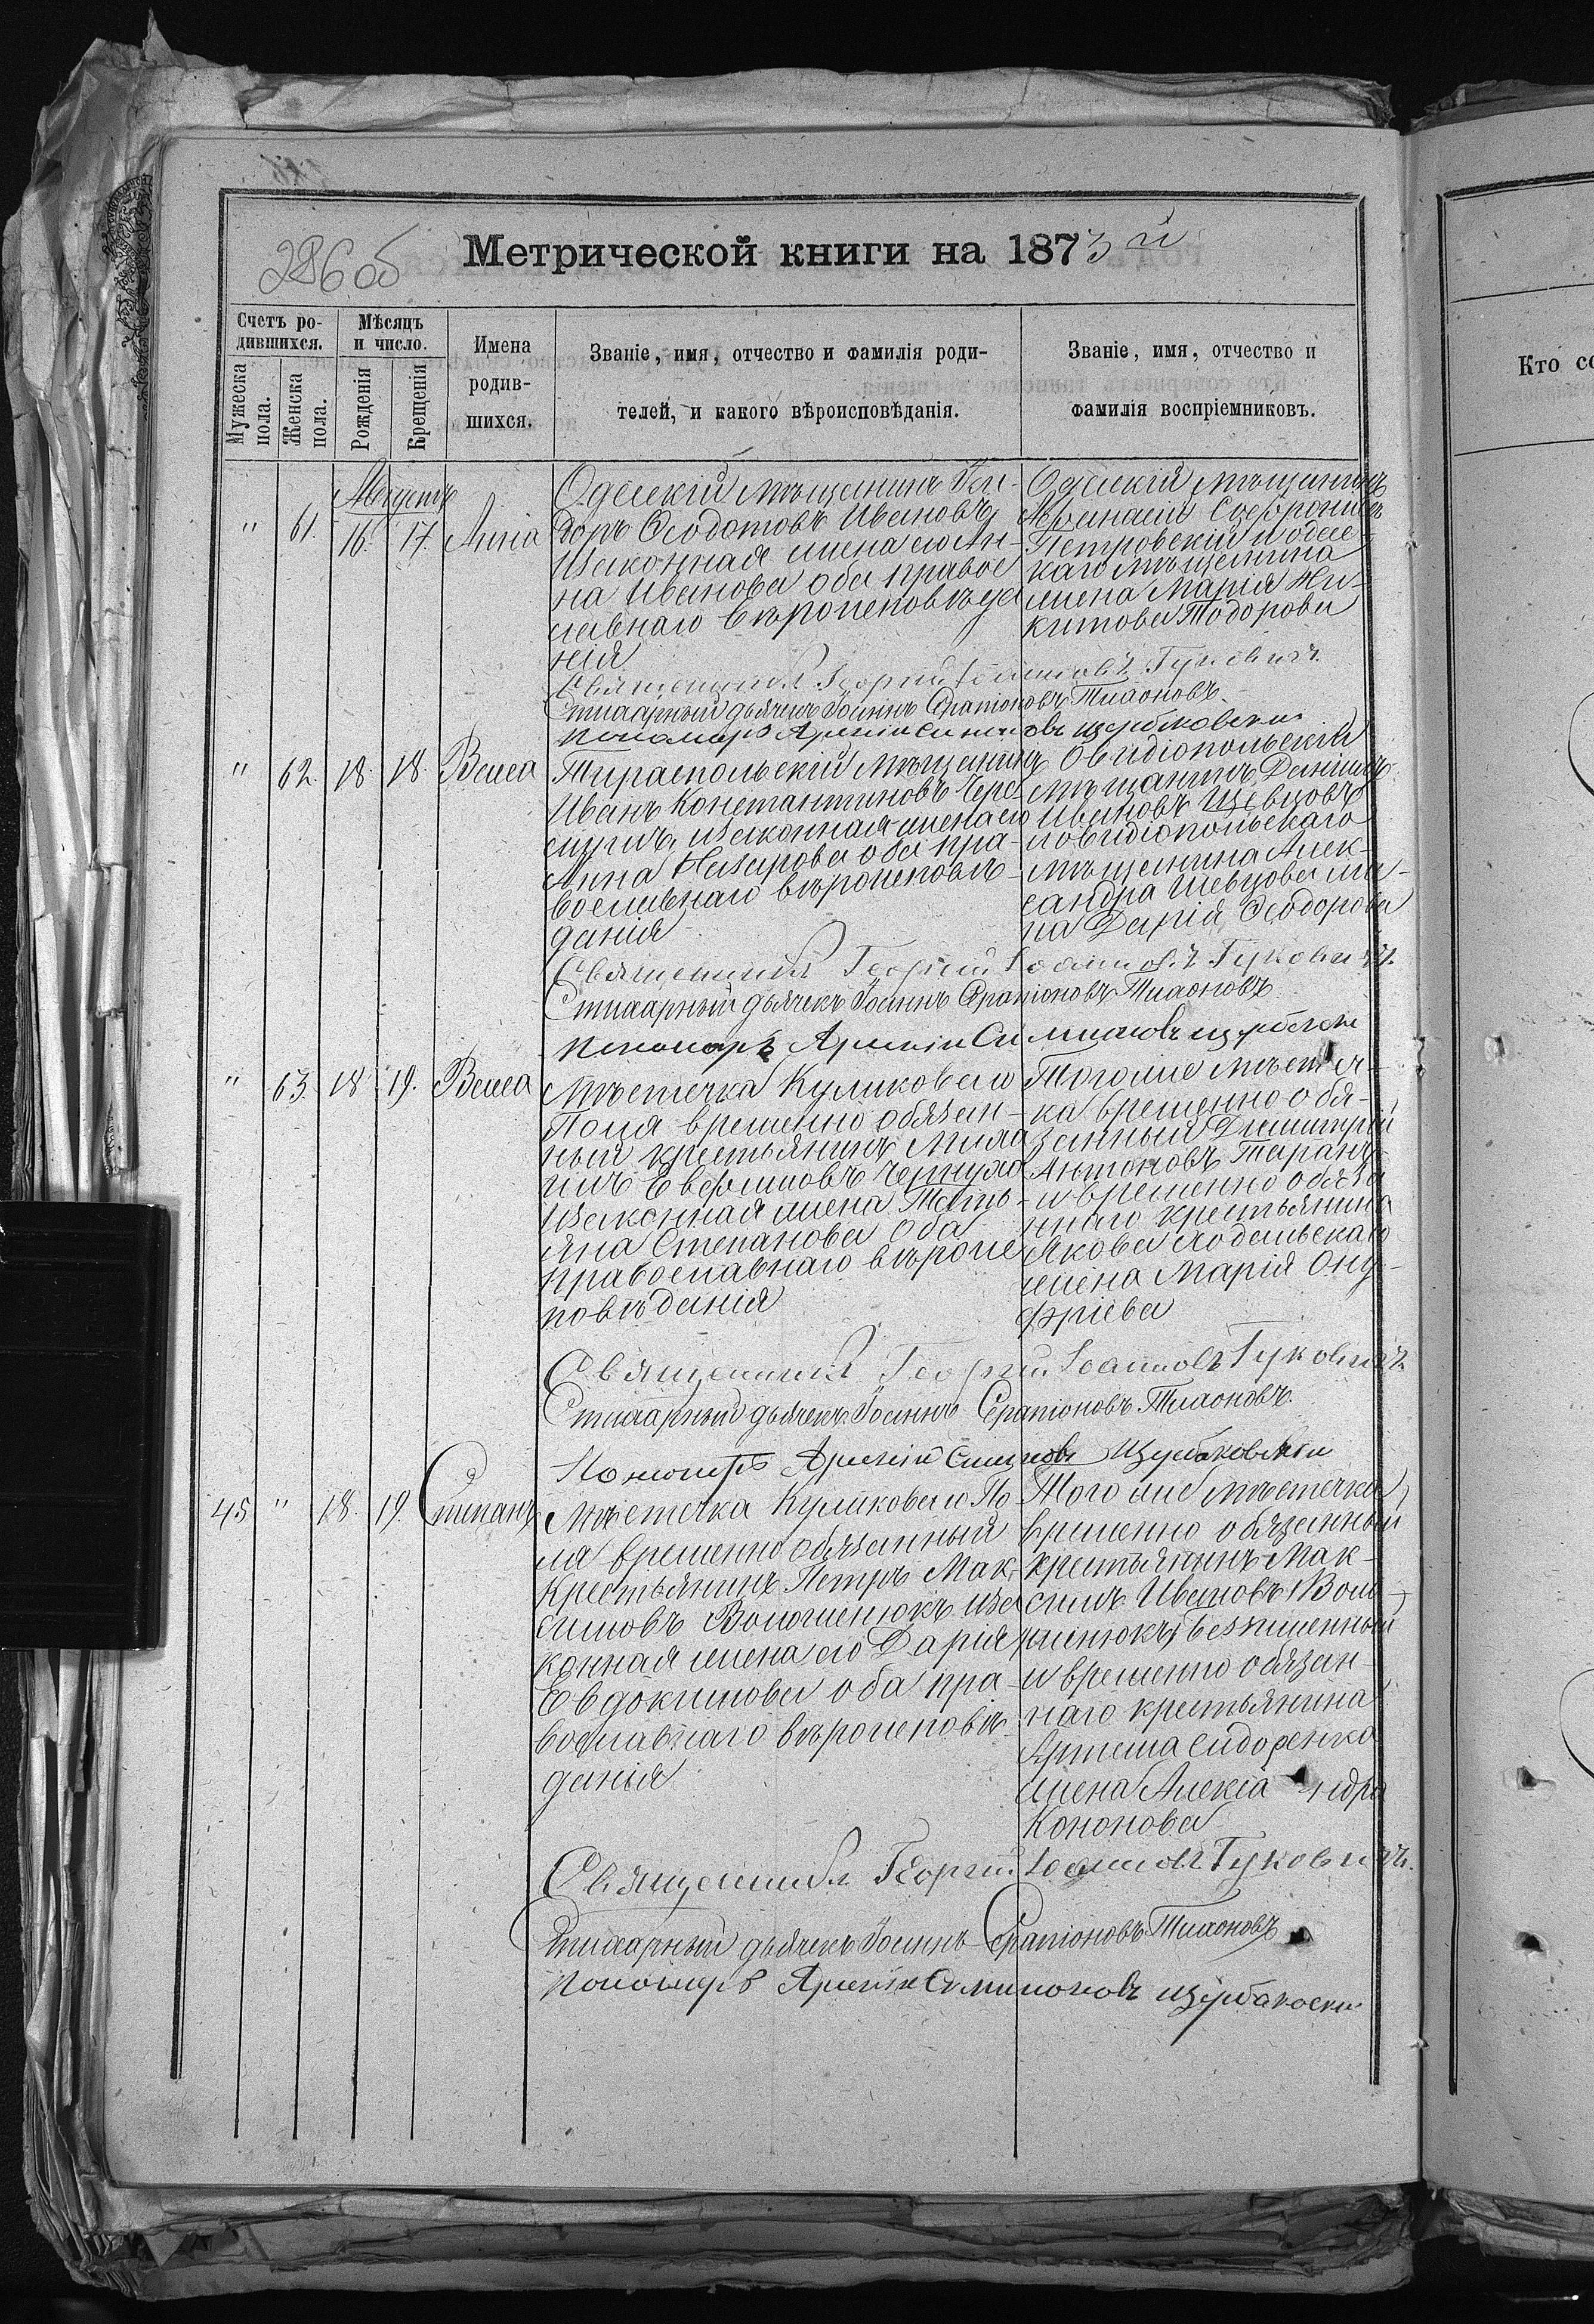 286 об
Метрической книги на 1873 й
Счетъ ро-
дившихся.
Мужеска
пола.
Женска
пола.
Мѣсяцъ
и число.
Рожденія
Крещенія
Имена
родив-
шихся.
Званіе, имя, отчество и фамилія роди-
телей, и какого вѣроисповѣданія.
Званіе, имя, отчество и
фамилія воспріемниковъ.
Кто со
Августъ
" 61. 16. 17. Анна
Одесскій мѣщанинъ
доръ Ѳеодотовъ Ивановъ
и законная жена его Ан-
на Иванова оба право
славнаго вѣроисповѣда
нія
Одесскій мѣщанинъ
Афанасій Софроніевъ
Петровскій и одес
каго мѣщанина
жена Марія Ни-
китова Тодорова
Священникъ Георгій Іоанновъ Гуковичъ.
Стихарный дьячекъ Іоаннъ Серапіоновъ Тихоновъ
Пономарь Арсеній Симоновъ Щербаковскій
" 62. 18. 18. Васса
Тираспольскій мѣщанинъ
Иванъ Константиновъ
и законная жена его
Анна Назарова оба пра-
вославнаго вѣроисповѣ-
данія
Овидіопольскій
мѣщанинъ Даніилъ
Ивановъ Шевцовъ
и овидіопольскаго
мѣщанина Алек-
сандра Шевцова же-
на Дарія Ѳеодорова
Священникъ Георгій Іоанновъ Гуковичъ.
Стихарный дьячекъ Іоаннъ Серапіоновъ Тихоновъ
Пономарь Арсеній Симоновъ
" 63. 18. 19. Васса
Мѣстечка Куликоваго
Поля временно обязан-
ный крестьянинъ Миха
илъ Евфимовъ
и законная жена Тать-
яна Степанова оба
православнаго вѣроис
повѣданія
Того же мѣстеч-
ка временно обя-
занный Димитрій
Антоновъ Таранъ
и временно обяза
ннаго крестьянина
Якова
жена Марія Ону-
фріева
Священникъ Георгій Іоанновъ Гуковичъ.
Стихарный дьячекъ Іоаннъ Серапіоновъ Тихоновъ.
Пономарь Арсеній Симоновъ Щербаковскій
45 " 18. 19. Стефанъ
Мѣстечка Куликоваго По
ля временно обязанный
крестьянинъ Петръ Мак-
симовъ Волошенюкъ и за
конная жена его Дарія
Евдокимова оба пра-
вославнаго вѣроисповѣ-
данія
Того же мѣстечка
временно обязанный
крестьянинъ Мак-
симъ Ивановъ Воло-
шенюкъ,
и временно обязан-
наго крестьянина
Артема Сидоренка
жена Алекса ндра
Кононова
Священникъ Георгій Іоанновъ Гуковичъ.
Стихарный дьячекъ Іоаннъ Серапіоновъ Тихоновъ
Пономарь Арсеній Симоновъ Щербаковскій